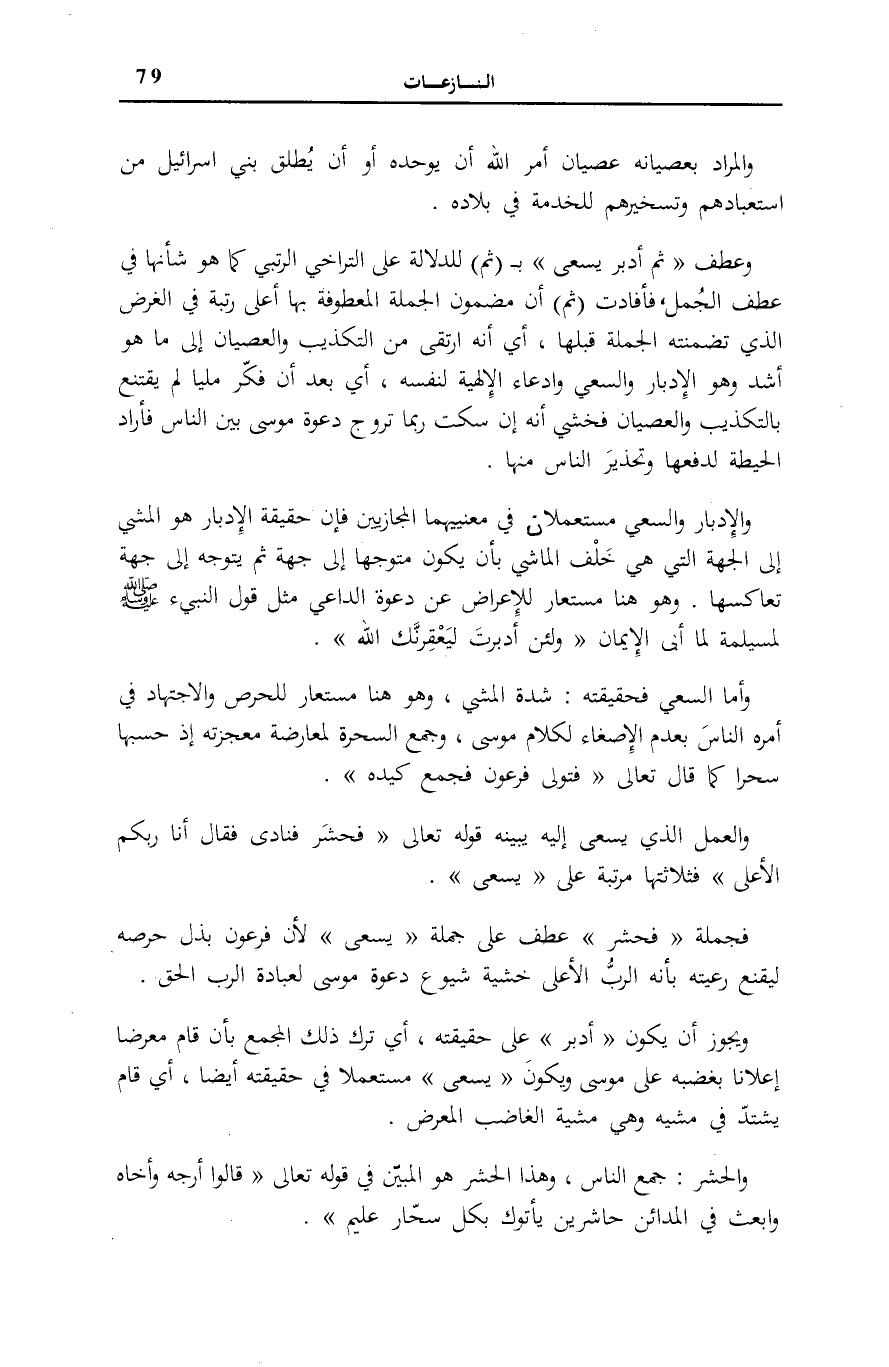 النــازعــات 79
والمراد بعصيانه عصيان أمر الله أن يوحده أو أن يُطلق بني اسرائيل من
استعبادهم وتسخيرهم للخدمة في بلاده .
وعطف « ثم أدبر يسعى » بـ (ثم) للدلالة على التراخي الرتبي كما هو شأنها في
عطف الجُمل، فأفادت (ثم) أن مضمون الجملة المعطوفة بها أعلى رتبة في الغرض
الذي تضمنته الجملة قبلها ، أي أنه ارتقى من التكذيب والعصيان إلى ما هو
أشد وهو الإدبار والسعي وادعاء الإلهية لنفسه ، أي بعد أن فكّر مليا لم يقتنع
بالتكذيب والعصيان فخشي أنه إن سكت ربما تروج دعوة موسى بين الناس فأراد
الحيطة لدفعها وتحذيرَ الناس منها .
والإدبار والسعي مستعملان في معنييهما المجازيين فإن حقيقة الإدبار هو المشي
إلى الجهة التي هي خَلْف الماشي بأن يكون متوجها إلى جهة ثم يتوجه إلى جهة
تعاكسها . وهو هنا مستعار للإعراض عن دعوة الداعي مثل قول النبيء ﷺ
لمسيلمة لما أبى الإيمان « ولئن أدبرتَ ليَعْقِرنَّك الله » .
وأما السعي فحقيقته : شدة المشي ، وهو هنا مستعار للحرص والاجتهاد في
أمره الناسَ بعدم الإصغاء لكلام موسى ، وجمع السحرة لمعارضة معجزته إذ حسبها
سحرا كما قال تعالى « فتولى فرعون فجمع كيده » .
والعمل الذي يسعى إليه يبينه قوله تعالى « فحشَر فنادى فقال أنا ربكم
الأعلى » فثلاثتها مرتبة على « يسعى » .
فجملة « فحشر » عطف على جملة « يسعى » لأن فرعون بذل حرصه
ليقنع رعيته بأنه الربُّ الأعلى خشية شيوع دعوة موسى لعبادة الرب الحق .
ويجوز أن يكون « أدبر » على حقيقته ، أي ترك ذلك المجمع بأن قام معرضا
إعلانا بغضبه على موسى ويكونَ « يسعى » مستعملا في حقيقته أيضا ، أي قام
يشتدّ في مشيه وهي مشية الغاضب المعرض .
والحشر : جمع الناس ، وهذا الحشر هو المبيّن في قوله تعالى « قالوا أرجه وأخاه
وابعث في المدائن حاشرين يأتوك بكل سحّار عليم » .